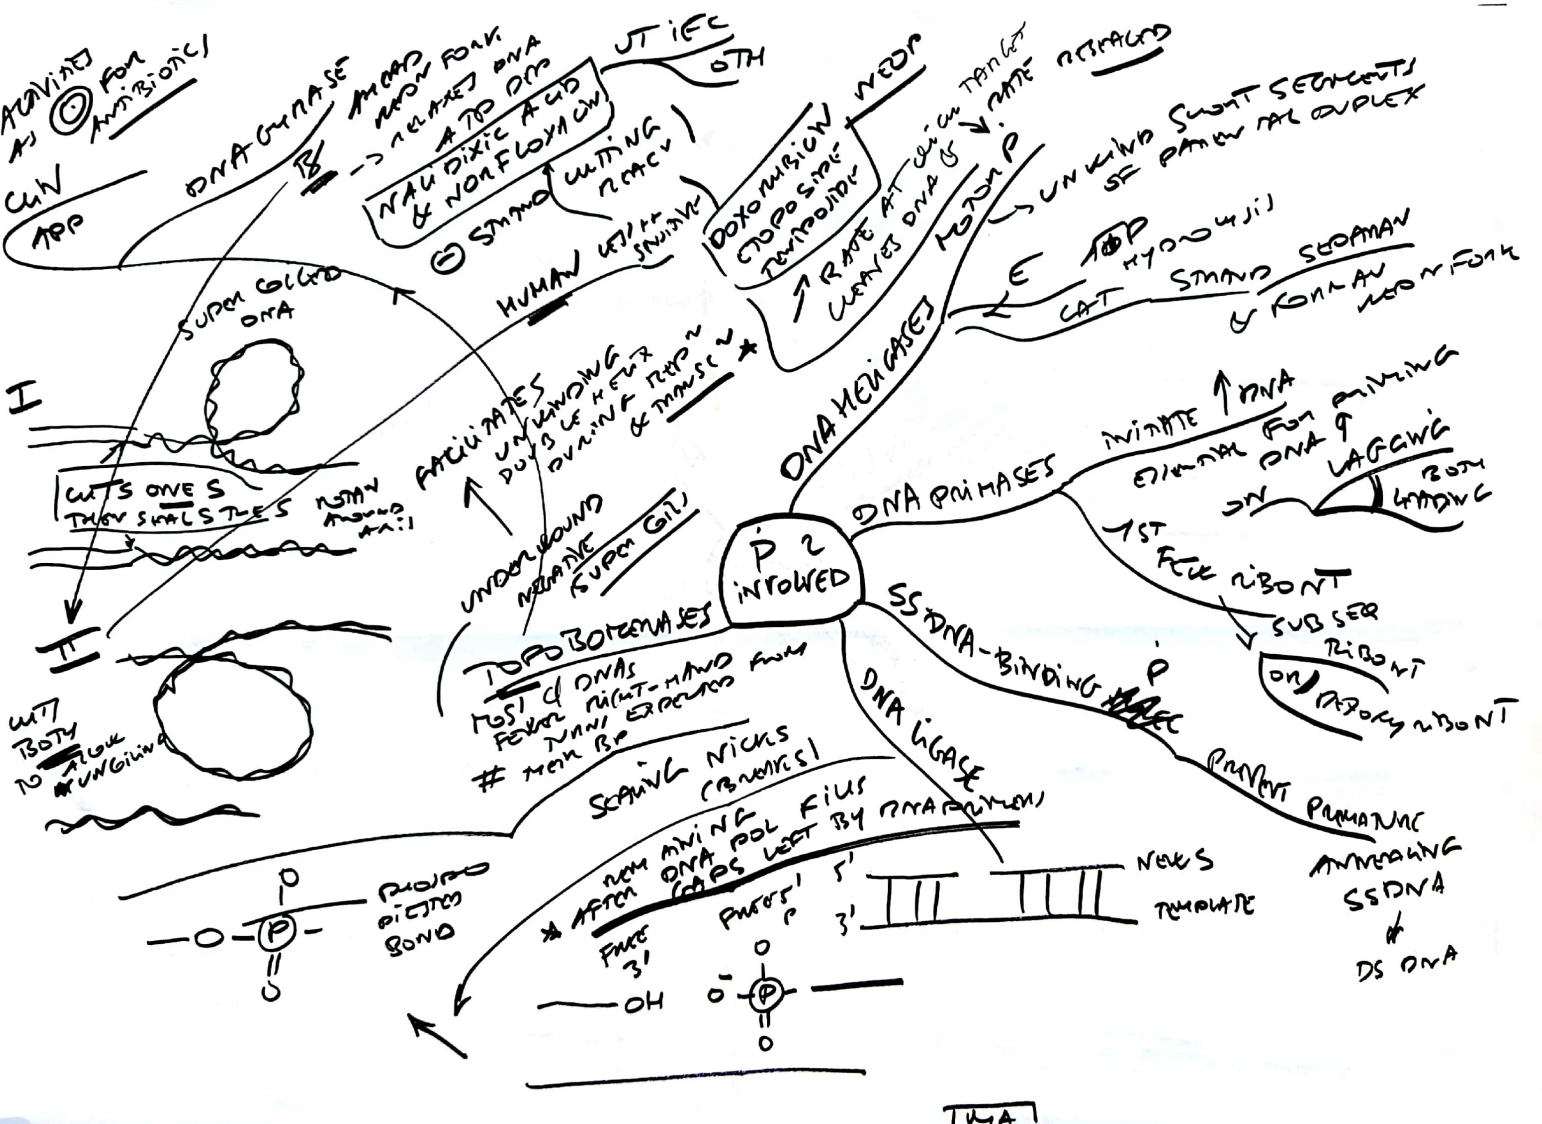 P 2
INVOLVED
DNA HELICASES
MOTOR P
UNWIND SHORT SEGMENTS
OF PARENTAL DUPLEX
E
HYDROLYSIS
CAT
STRAND SEPARAN
& FORMAN
REPN FORK
DNA PRIMASES
INITIATE ↑ DNA
ESSENTIAL FOR PRIMING
DNA
ON
LAGGING
BOTH
LEADING
1ST
FEW RIBONT
SUBSEQ
RIBONT
OR
DEOXYRIBONT
SSDNA-BINDING
P
PREVENT PREMATURE
ANNEALING
SSDNA
DS DNA
DNA LIGASE
SEALING NICKS
(BREAKS)
REMAINING
AFTER DNA POL FILLS
GAPS LEFT BY RNA PRIMERS
5'
3'
NEW S
TEMPLATE
FREE
3'
OH
5'
P
O
O⁻
P
O
O
O
P
O
PHOSPHO
DIESTER
BOND
TOPOISOMERASES
MOST DNAS
FEWER RIGHT-HAND
TURNS EXPECTED FROM
# THEIR BP
UNDERWOUND
NEGATIVE
SUPER COILS
FACILITATES
UNWINDING
DOUBLE HELIX
DURING REPN
& TRANSCN
I
SUPER COILED
DNA
CUTS ONE S
THEN SEALS THE S
ROTAN
AROUND
AXIS
II
CUTS
BOTH
TO ALLOW
UNCOILING
HUMAN
LESS
SENSITIVE
CLIN
APP
DNA GYRASE
AHEAD
REPN FORK
→ RELAXES DNA
ATP DEP
NALIDIXIC ACID
& NORFLOXACIN
UT IEC
OTH
STRAND
CUTTING
REACN
ACTIVITIES
AS FOR
ANTIBIOTICS
DOXORUBICIN
ETOPOSIDE
TENIPOSIDE
NEOP
↑ RATE AT WHICH TARGET
CLEAVES DNA &
↓ RATE RESEALED